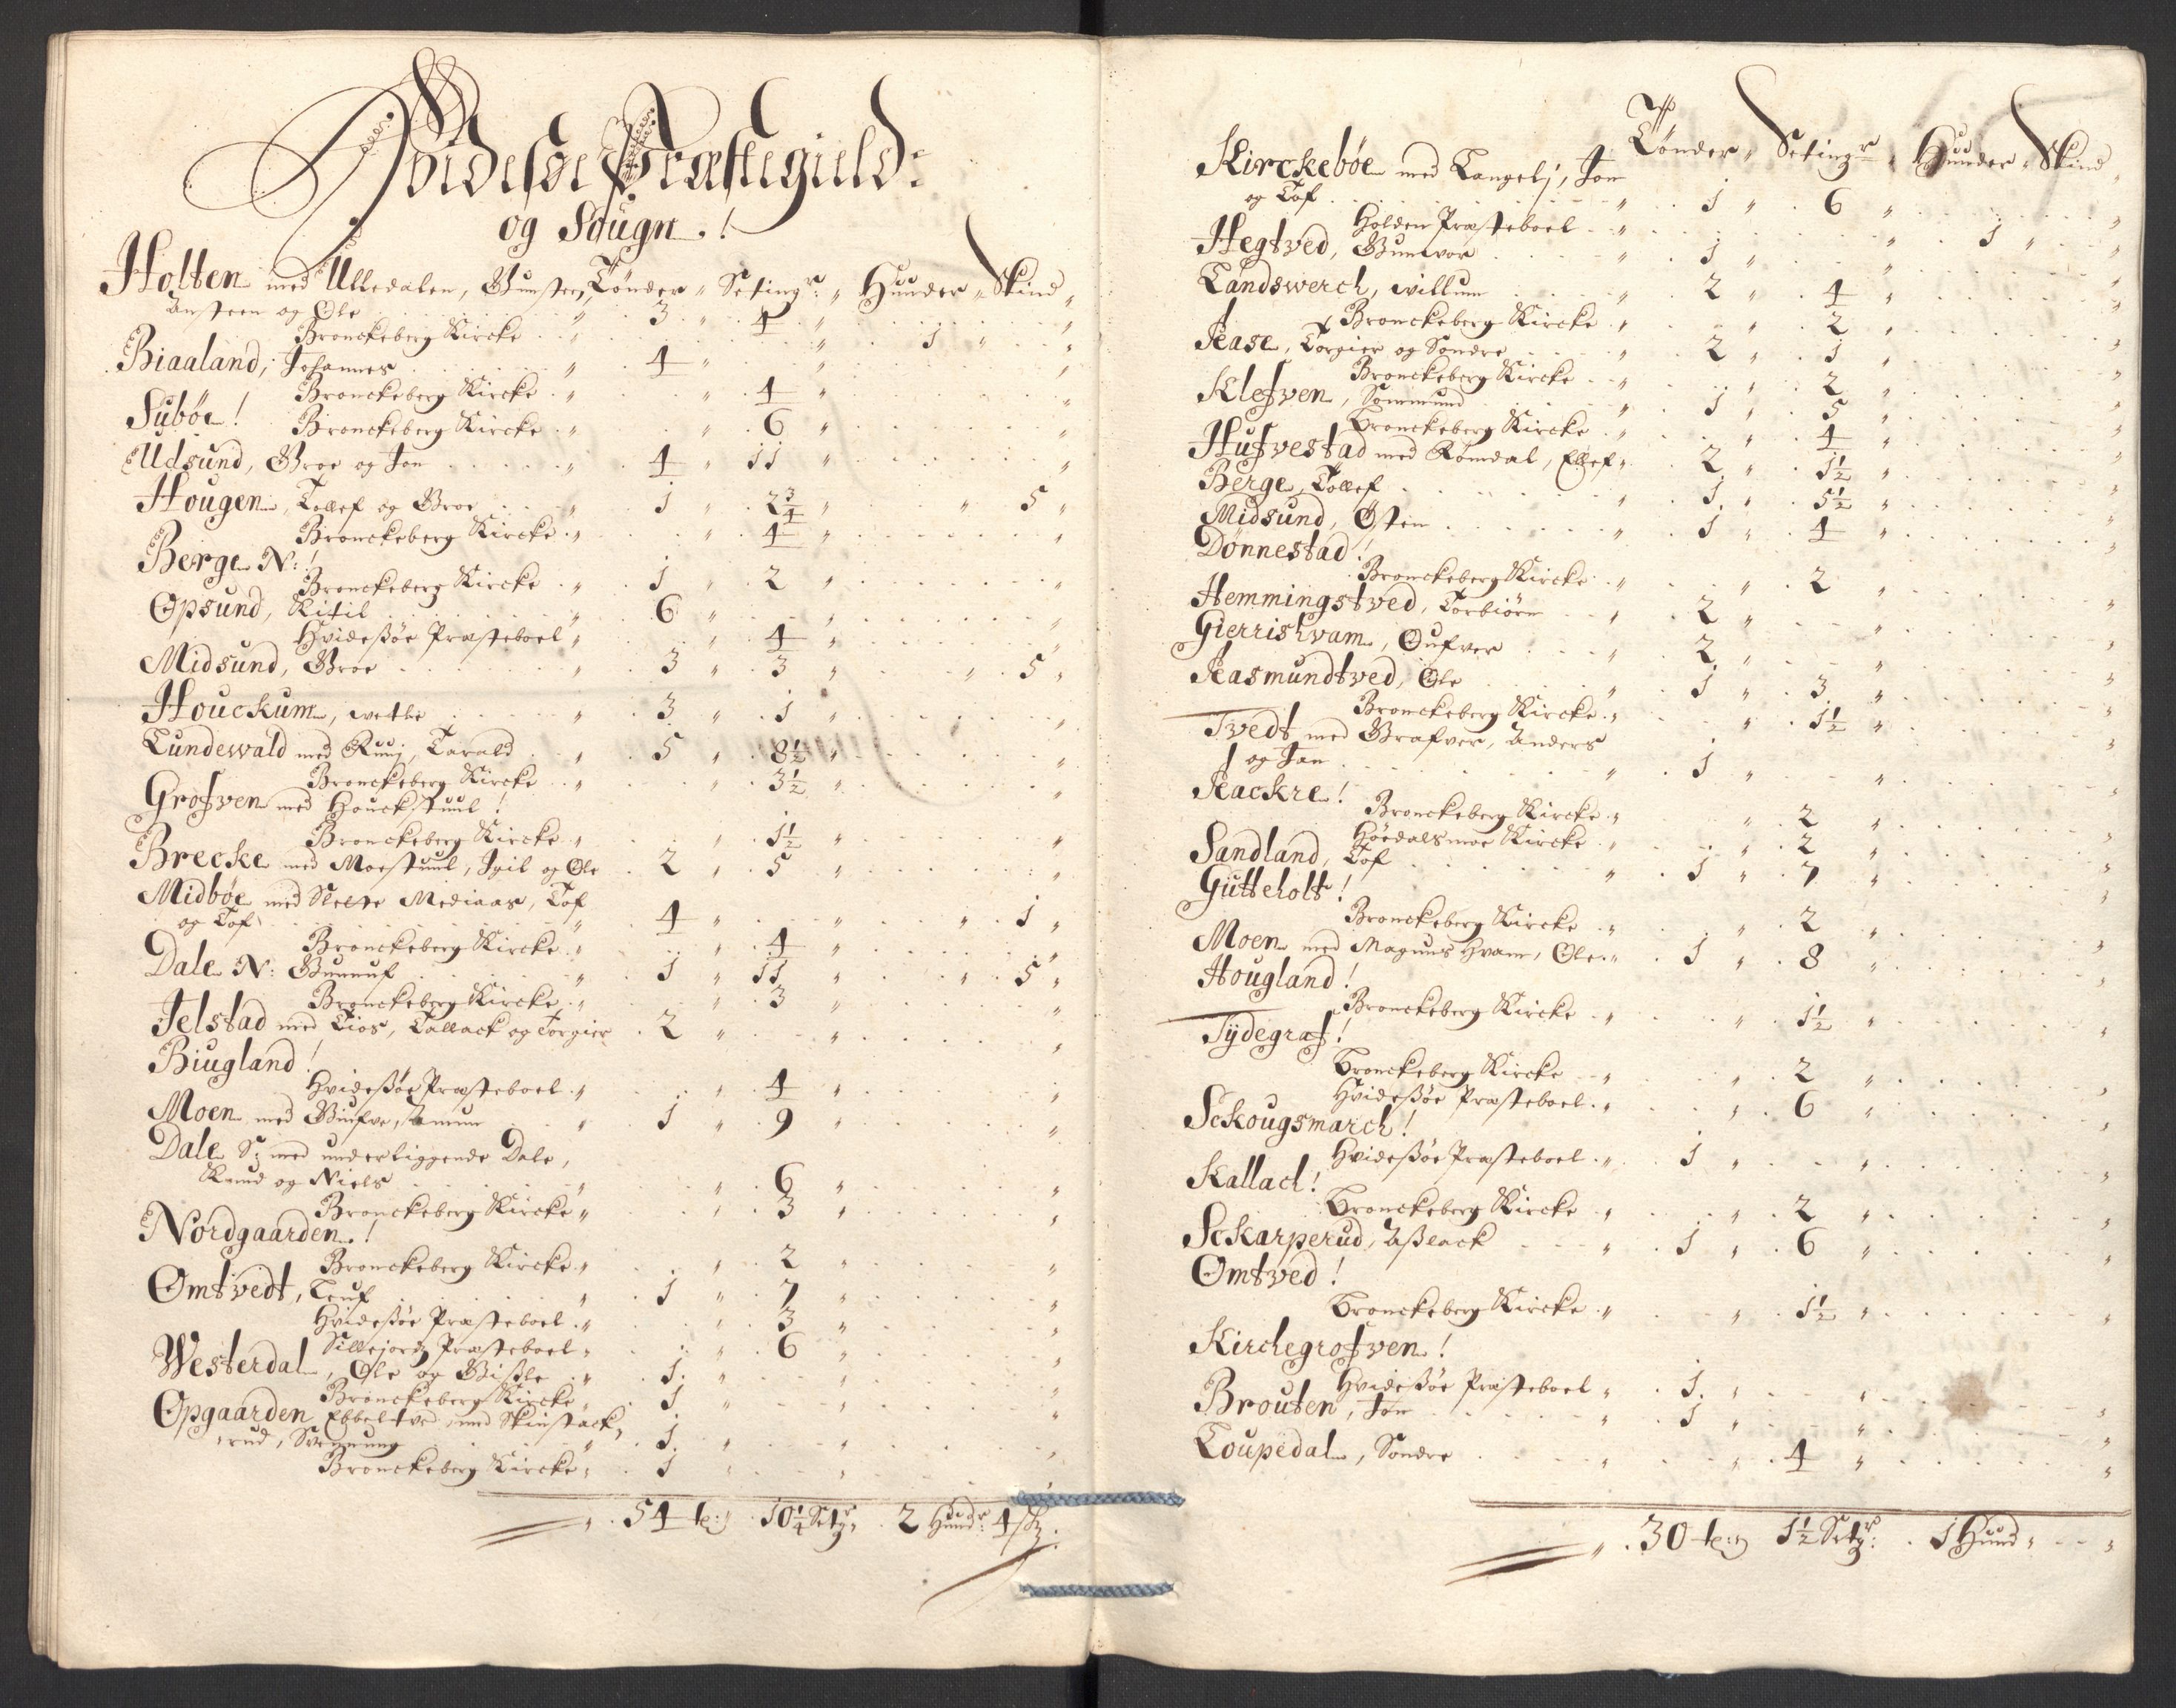 Hvidesøe Præstegield:
og Sougn!
Tønder " Setingr " Huuder " Skind "
Holten med Ulledalen, Gunsten,
Ansteen og Ole " 3 " 4 " "
Bronckeberg Kircke " " 1 " "
Biaaland, Johannes " 4 " " "
Bronckeberg Kircke " " 4 " "
Subøe! Bronckeberg Kircke " " 6 " "
Udsund, Groe og Jon " 4 " 11 " "
Hougen, Tollef og Groe " 1 " 2 3/4 " " 5 "
Bronckeberg Kircke " " 4 " "
Berge N:!
Bronckeberg Kircke " 1 " 2 " "
Opsund, Kitil " 6 " " "
Hvidesøe Præsteboel " " 4 " "
Midsund, Groe " 3 " 3 " " 5 "
Houckum, " 3 " 1 " "
Lundewald med Ruuj, Tarald " 5 " 8 1/2 " "
Bronckeberg Kircke " " 3 1/2 " "
Grofven med Houckstuul!
Bronckeberg Kircke " " 1 1/2 " "
Brecke med Moestuul, Igil og Ole 2 " 5 " "
Midbøe med Slette Mediaas, Tof
og Tof " 4 " " " 1 "
Bronckeberg Kircke " " 4 " "
Dale N: Gunnuf " 1 " 11 " " 5 "
Bronckeberg Kircke " " 3 " "
Jelstad med Lios, Tallack og Torgier 2 " " "
Biugland!
Hvidesøe Præsteboel " " 4 " "
Moen med Giufve, Amun " 1 " 9 " "
Dale S: med underliggende Dale,
Knud og Niels " " 6 " "
Bronckeberg Kircke " " 3 " "
Nordgaarden!
Bronckeberg Kircke " " 2 " "
Omtvedt, Leuf " 1 " 7 " "
Hvidesøe Præsteboel " " 3 " "
Sillejord Præsteboel " " 6 " "
Westerdal, Ole og Gisle " 1 " " "
Bronckeberg Kircke " 1 " " "
Opgaarden Ebbeltved med Skinstack,
rud, Svennung " 1 " " "
Bronckeberg Kircke " 1 " " "
" 54 te:r 10 1/4 Setgr " 2 Hundr: 4 sk:
Tønder " Setingr " Huuder " Skind "
Kirckebøe med Langelj, Jon
og Tof " 1 " 6 " "
Holden Præsteboel " " 1 " "
Hegtved, Gunvor " 1 " " "
Landswerch, Willum " 2 " 4 " "
Bronckeberg Kircke " " 2 " "
Aase, Torgier og Sondre " 2 " 1 " "
Bronckeberg Kircke " " 2 " "
Klefven, Sommund " 1 " 5 " "
Bronckeberg Kircke " " 4 " "
Hufvestad med Romdal, Ellef " 2 " 1 1/2 " "
Berge, Tollef " 1 " 5 1/2 " "
Midsund, Østen " 1 " 4 " "
Dønnestad!
Bronckeberg Kircke " " 2 " "
Hemmingstved, Torbiørn " 2 " " "
Gierrishvam, Oufver " 2 " " "
Aasmundtved, Ole " 1 " 3 " "
Bronckeberg Kircke " " 1 1/2 " "
Tvedt med Grafver, Anders
og Jan " 1 " " "
Aackre!
Bronckeberg Kircke " " 2 " "
Høedalsmoe Kircke " " 2 " "
Sandland, Tof " 1 " 7 " "
Gutteholt!
Bronckeberg Kircke " " 2 " "
Moen med Magnus Hvam, Ole " 1 " 8 " "
Hougland!
Bronckeberg Kircke " " 1 1/2 " "
Tydegraf!
Bronckeberg Kircke " " 2 " "
Hvidesøe Præsteboel " " 6 " "
Sckougsmarch!
Hvidesøe Præsteboel " 1 " " "
Kallach!
Bronckeberg Kircke " " 2 " "
Sckarperud, Aslack " 1 " 6 " "
Omtved!
Bronckeberg Kircke " " 1 1/2 " "
Kirchegrofven!
Hvidesøe Præsteboel " 1 " " "
Brouten, Jon " 1 " " "
Loupedal, Sondre " " 4 " "
" 30 te:r 1 1/2 Setgr: 1 Hund " "